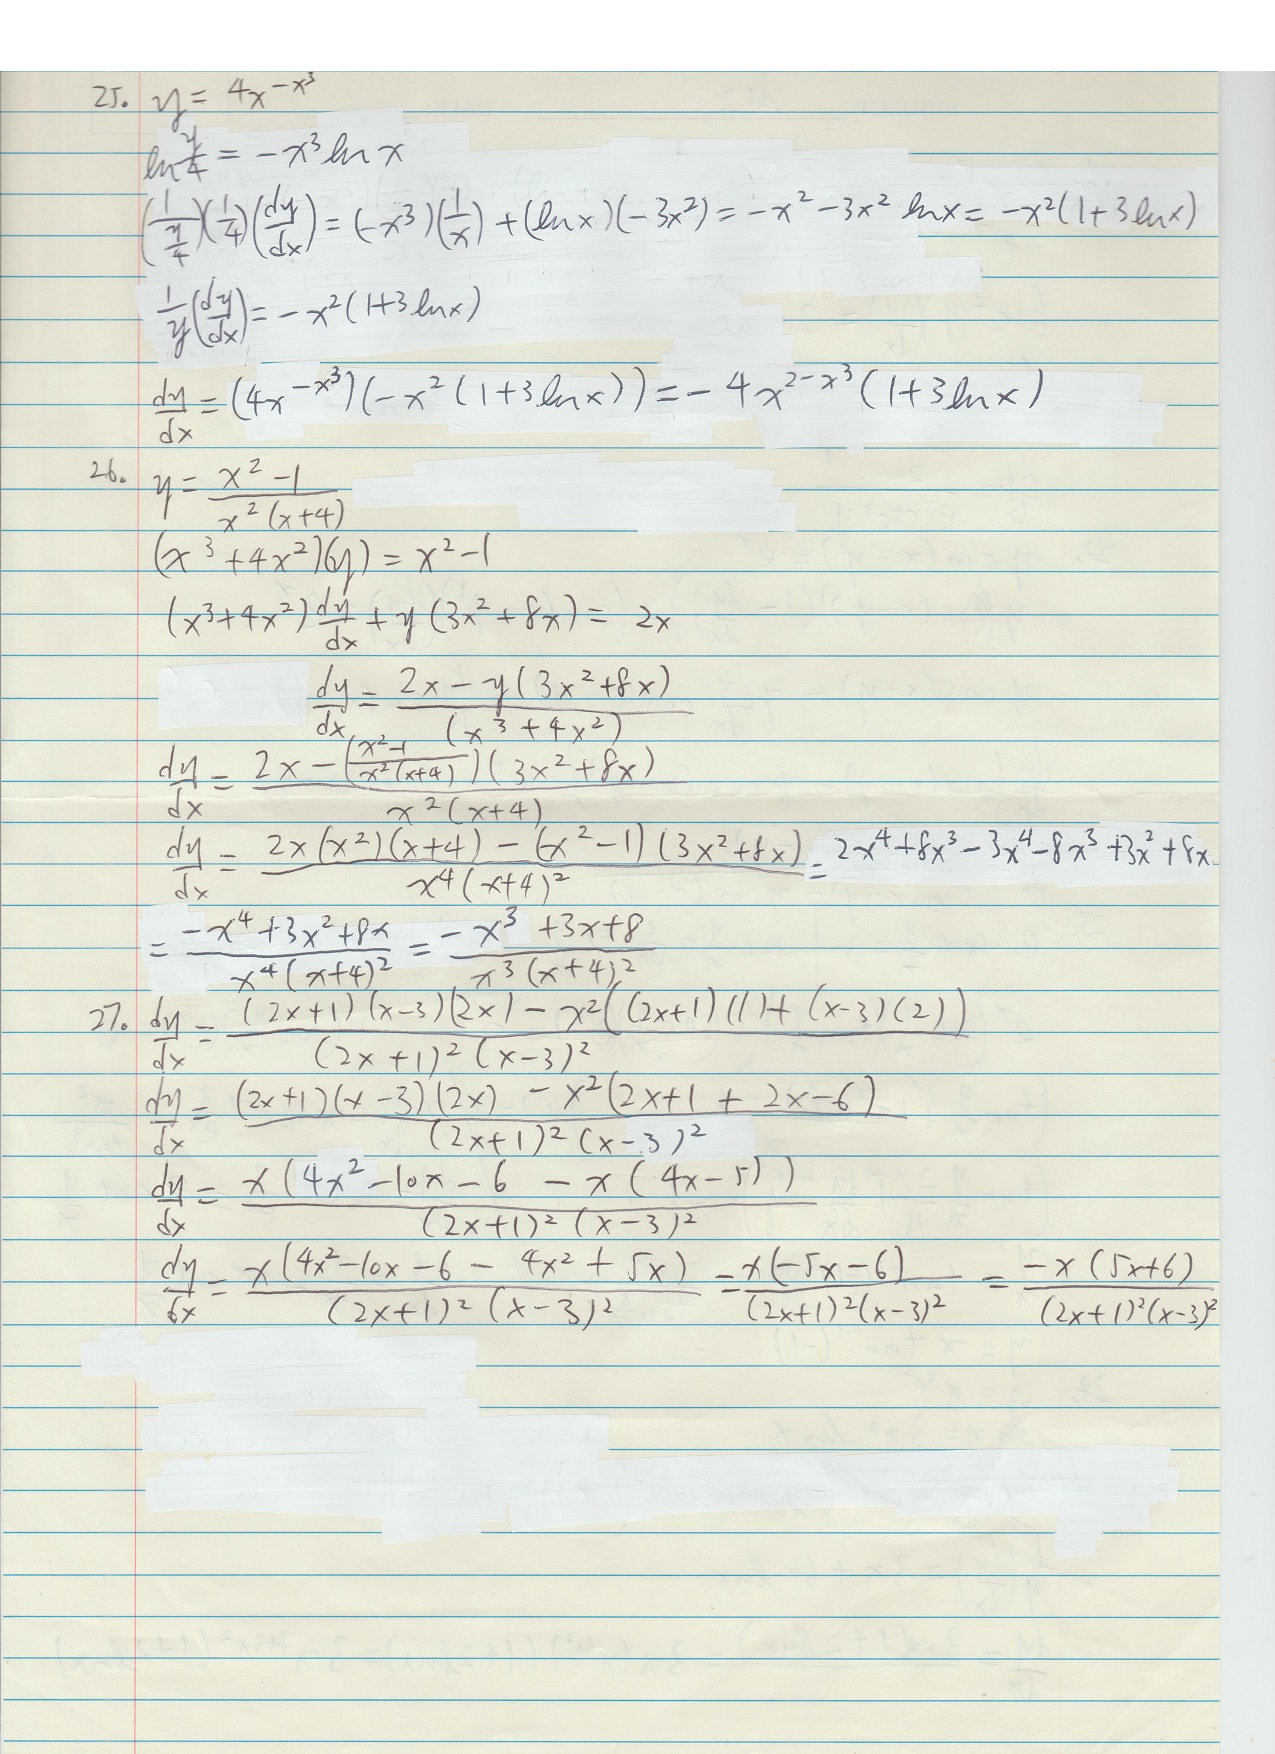 25. y = 4x^{-x^3}
ln y/4 = -x^3 ln x
(1/(y/4))(1/4)(dy/dx) = (-x^3)(1/x) + (ln x)(-3x^2) = -x^2 - 3x^2 ln x = -x^2(1+3 ln x)
1/y (dy/dx) = -x^2(1+3 ln x)
dy/dx = (4x^{-x^3})(-x^2(1+3 ln x)) = -4x^{2-x^3}(1+3 ln x)
26. y = (x^2-1)/(x^2(x+4))
(x^3+4x^2)(y) = x^2-1
(x^3+4x^2) dy/dx + y(3x^2+8x) = 2x
dy/dx = (2x - y(3x^2+8x))/(x^3+4x^2)
dy/dx = (2x - ((x^2-1)/(x^2(x+4)))(3x^2+8x))/(x^2(x+4))
dy/dx = (2x(x^2)(x+4) - (x^2-1)(3x^2+8x))/(x^4(x+4)^2) = 2x^4+8x^3-3x^4-8x^3+3x^2+8x
= (-x^4+3x^2+8x)/(x^4(x+4)^2) = (-x^3+3x+8)/(x^3(x+4)^2)
27. dy/dx = ((2x+1)(x-3)(2x) - x^2((2x+1)(1)+(x-3)(2)))/((2x+1)^2(x-3)^2)
dy/dx = ((2x+1)(x-3)(2x) - x^2(2x+1+2x-6))/((2x+1)^2(x-3)^2)
dy/dx = x(4x^2-10x-6 - x(4x-5))/((2x+1)^2(x-3)^2)
dy/dx = x(4x^2-10x-6-4x^2+5x)/((2x+1)^2(x-3)^2) = x(-5x-6)/((2x+1)^2(x-3)^2) = -x(5x+6)/((2x+1)^2(x-3)^2)